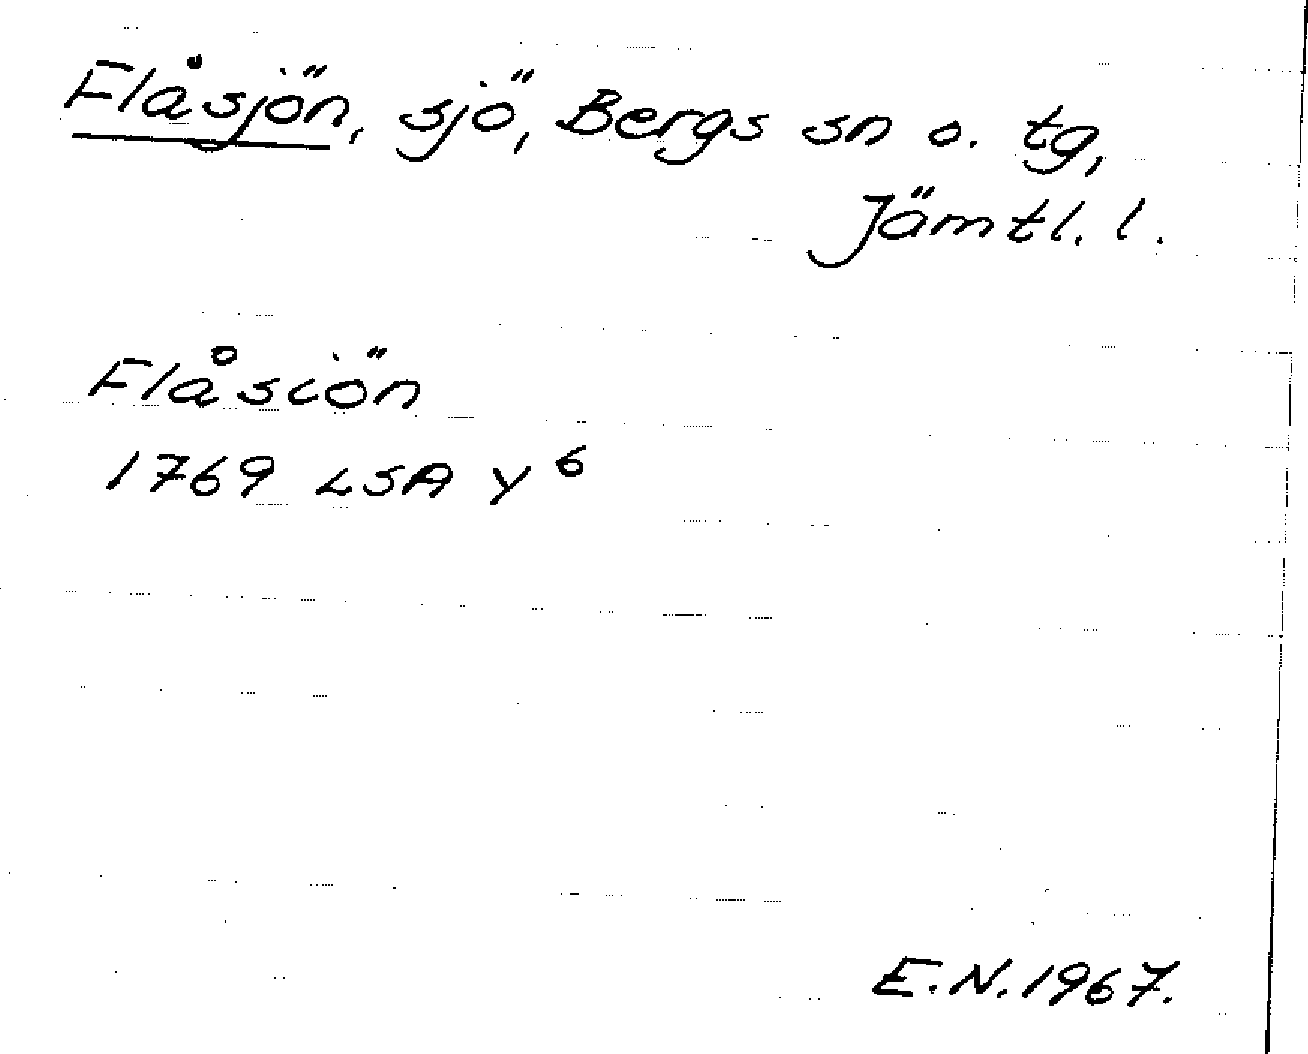 Flåsjön, sjö, Bergs sn o. tg,
Jämtl. l.
Flåsiön
1769 LSA Y⁶
E.N. 1967.